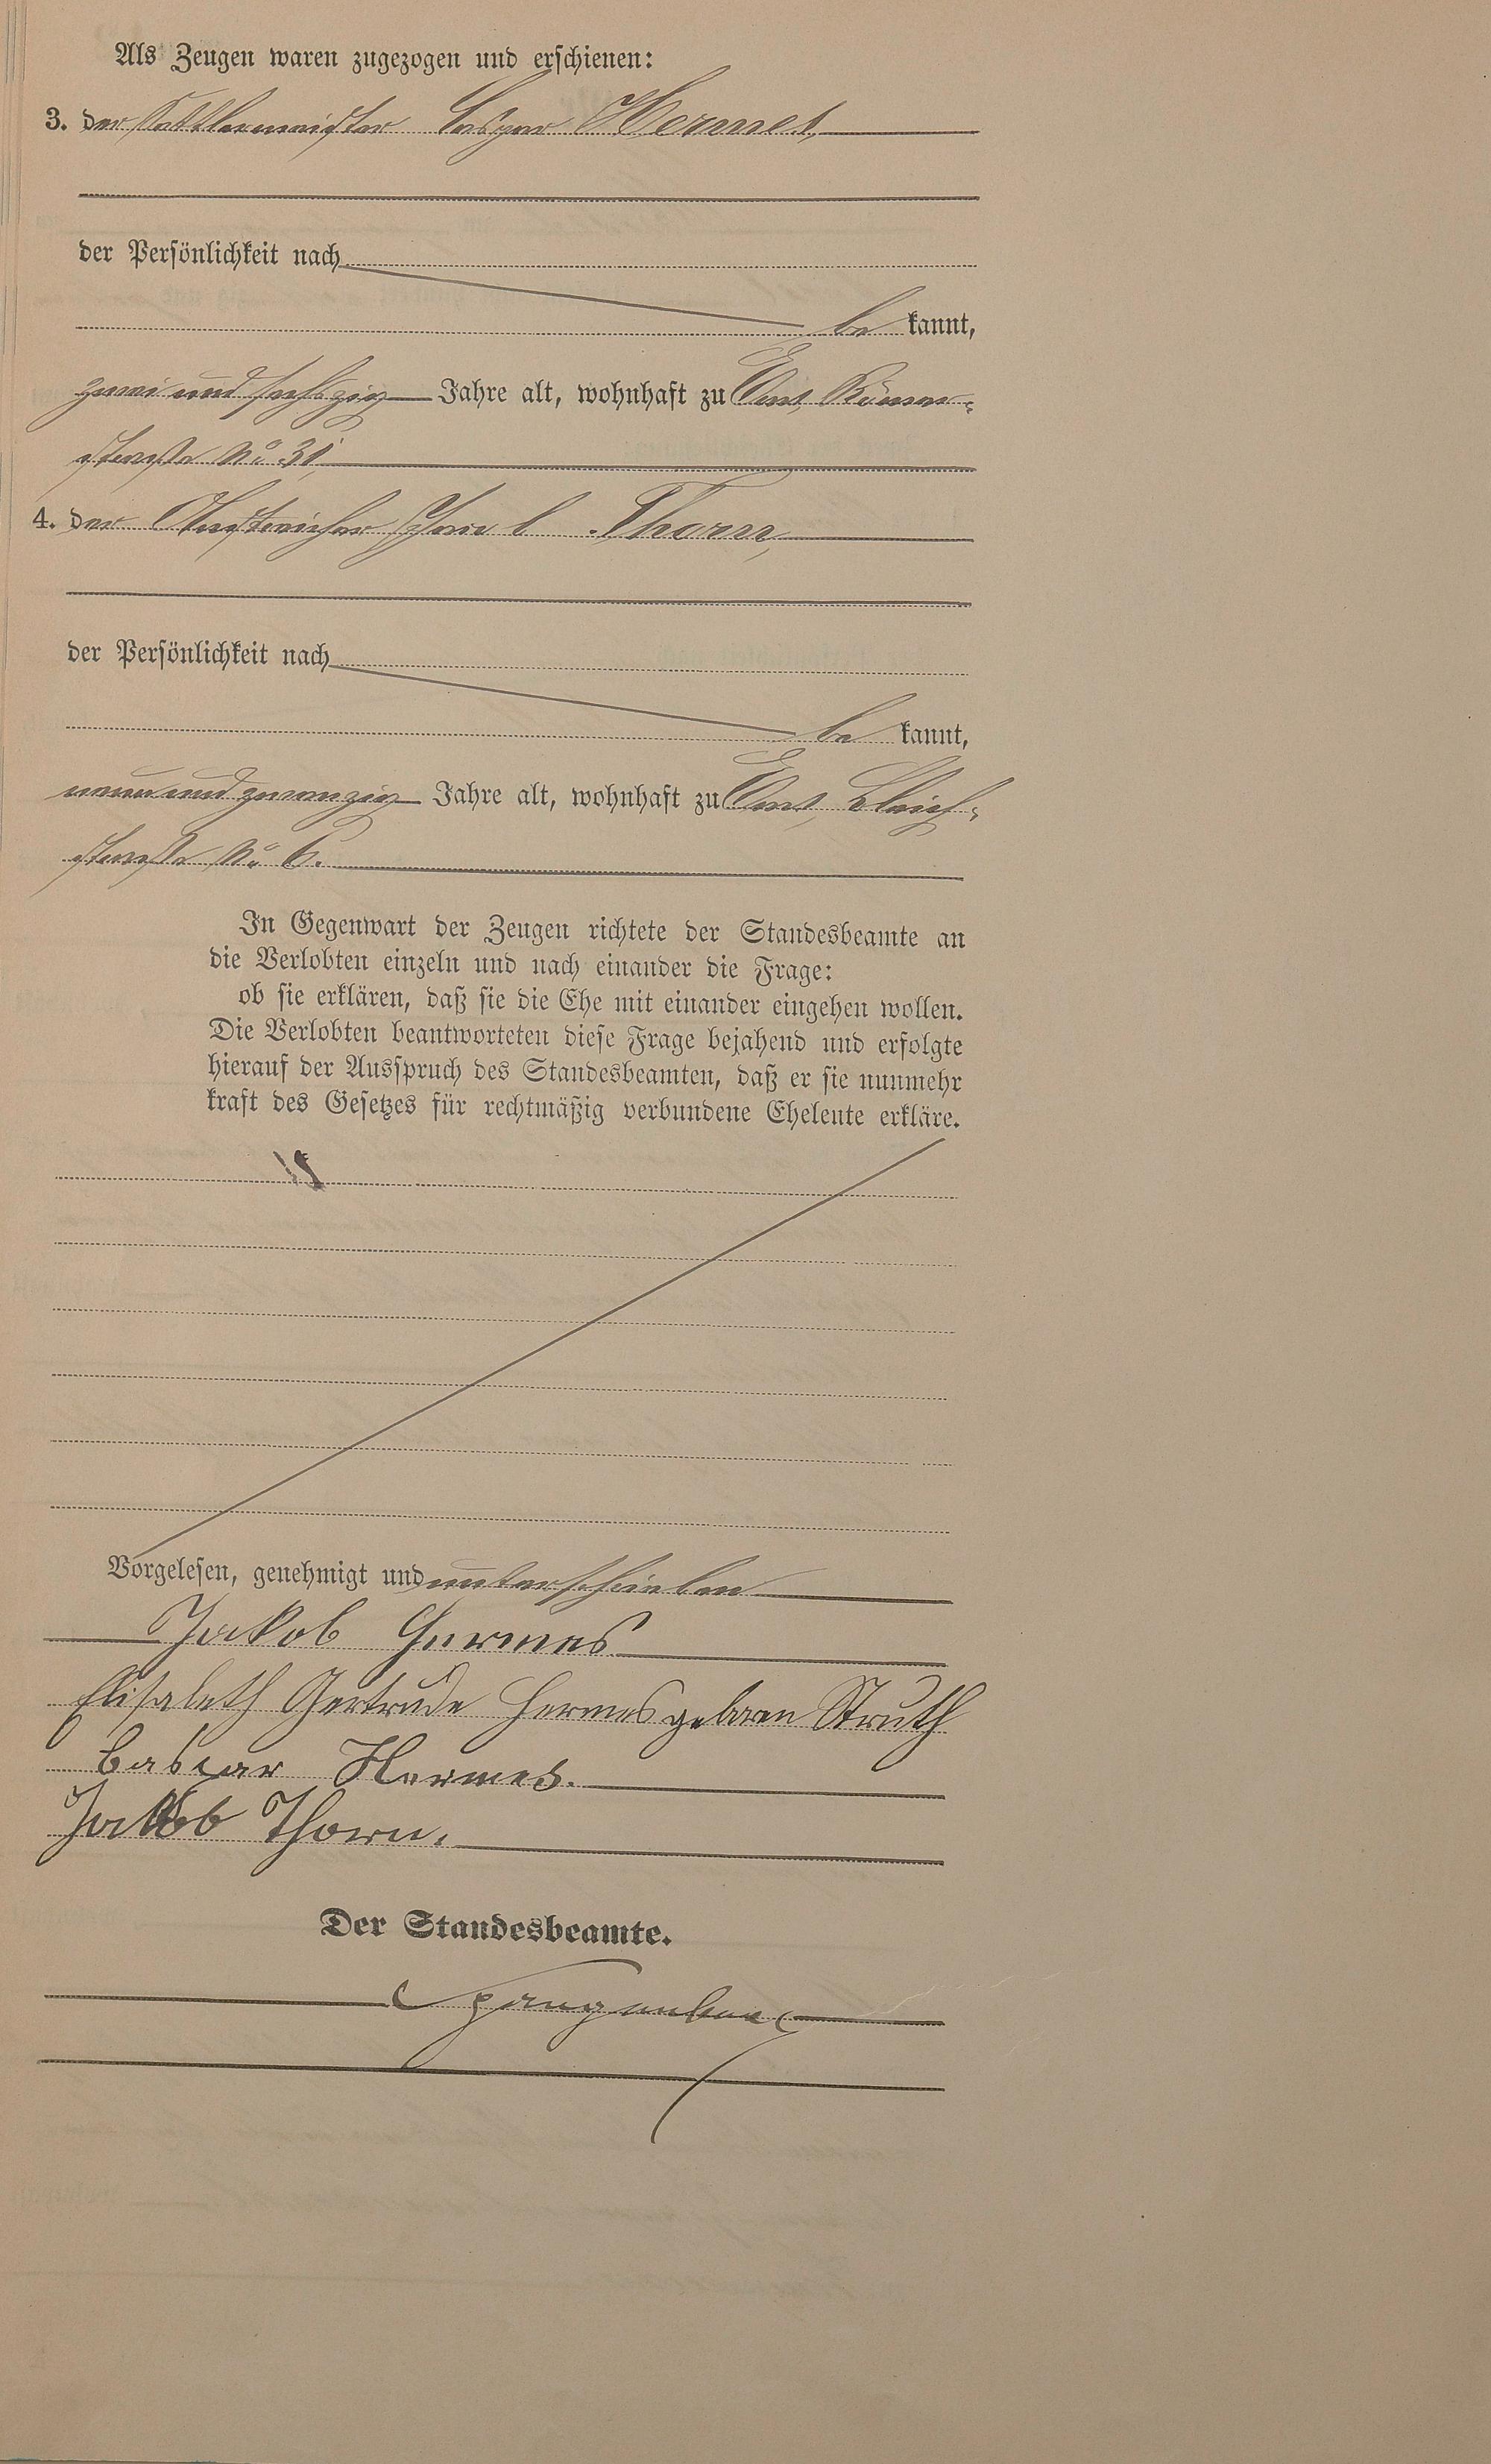 Als Zeugen waren zugezogen und erschienen:
3. der Sattlermeister Caspar Hermes,
der Persönlichkeit nach
be kannt,
zwei und sechszig Jahre alt, wohnhaft zu Ems, Römer-
straße No 31,
4. der Anstreicher Jacob Thorn,
der Persönlichkeit nach
be kannt,
neunundzwanzig Jahre alt, wohnhaft zu Ems, Bleich-
straße No 6.
In Gegenwart der Zeugen richtete der Standesbeamte an
die Verlobten einzeln und nach einander die Frage:
ob sie erklären, daß sie die Ehe mit einander eingehen wollen.
Die Verlobten beantworteten diese Frage bejahend und erfolgte
hierauf der Ausspruch des Standesbeamten, daß er sie nunmehr
kraft des Gesetzes für rechtmäßig verbundene Eheleute erkläre.
Vorgelesen, genehmigt und unterschrieben
Jakob Hermes
Elisabeth Gertrude Hermes geboren Struth
Caspar Hermes.
Jakob Thorn.
Der Standesbeamte.
Spangenberg